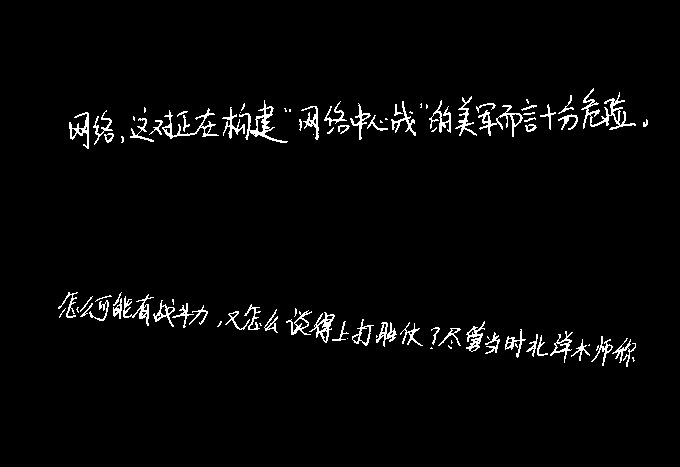 网络,这对正在构建“网络中心战”的美军而言十分危险。
怎么可能有战斗力,又怎么谈得上打胜仗?尽管当时北洋水师称